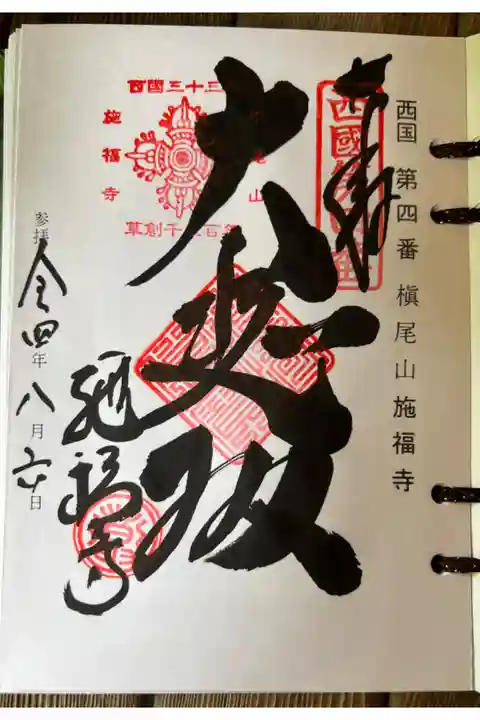 西国 第四番 槇尾山 施福寺
西國第四番
奉拝
大悲殿
西國三十三
尾山
施福寺
草創千三百年
施福寺
参拝 令四年八月六日